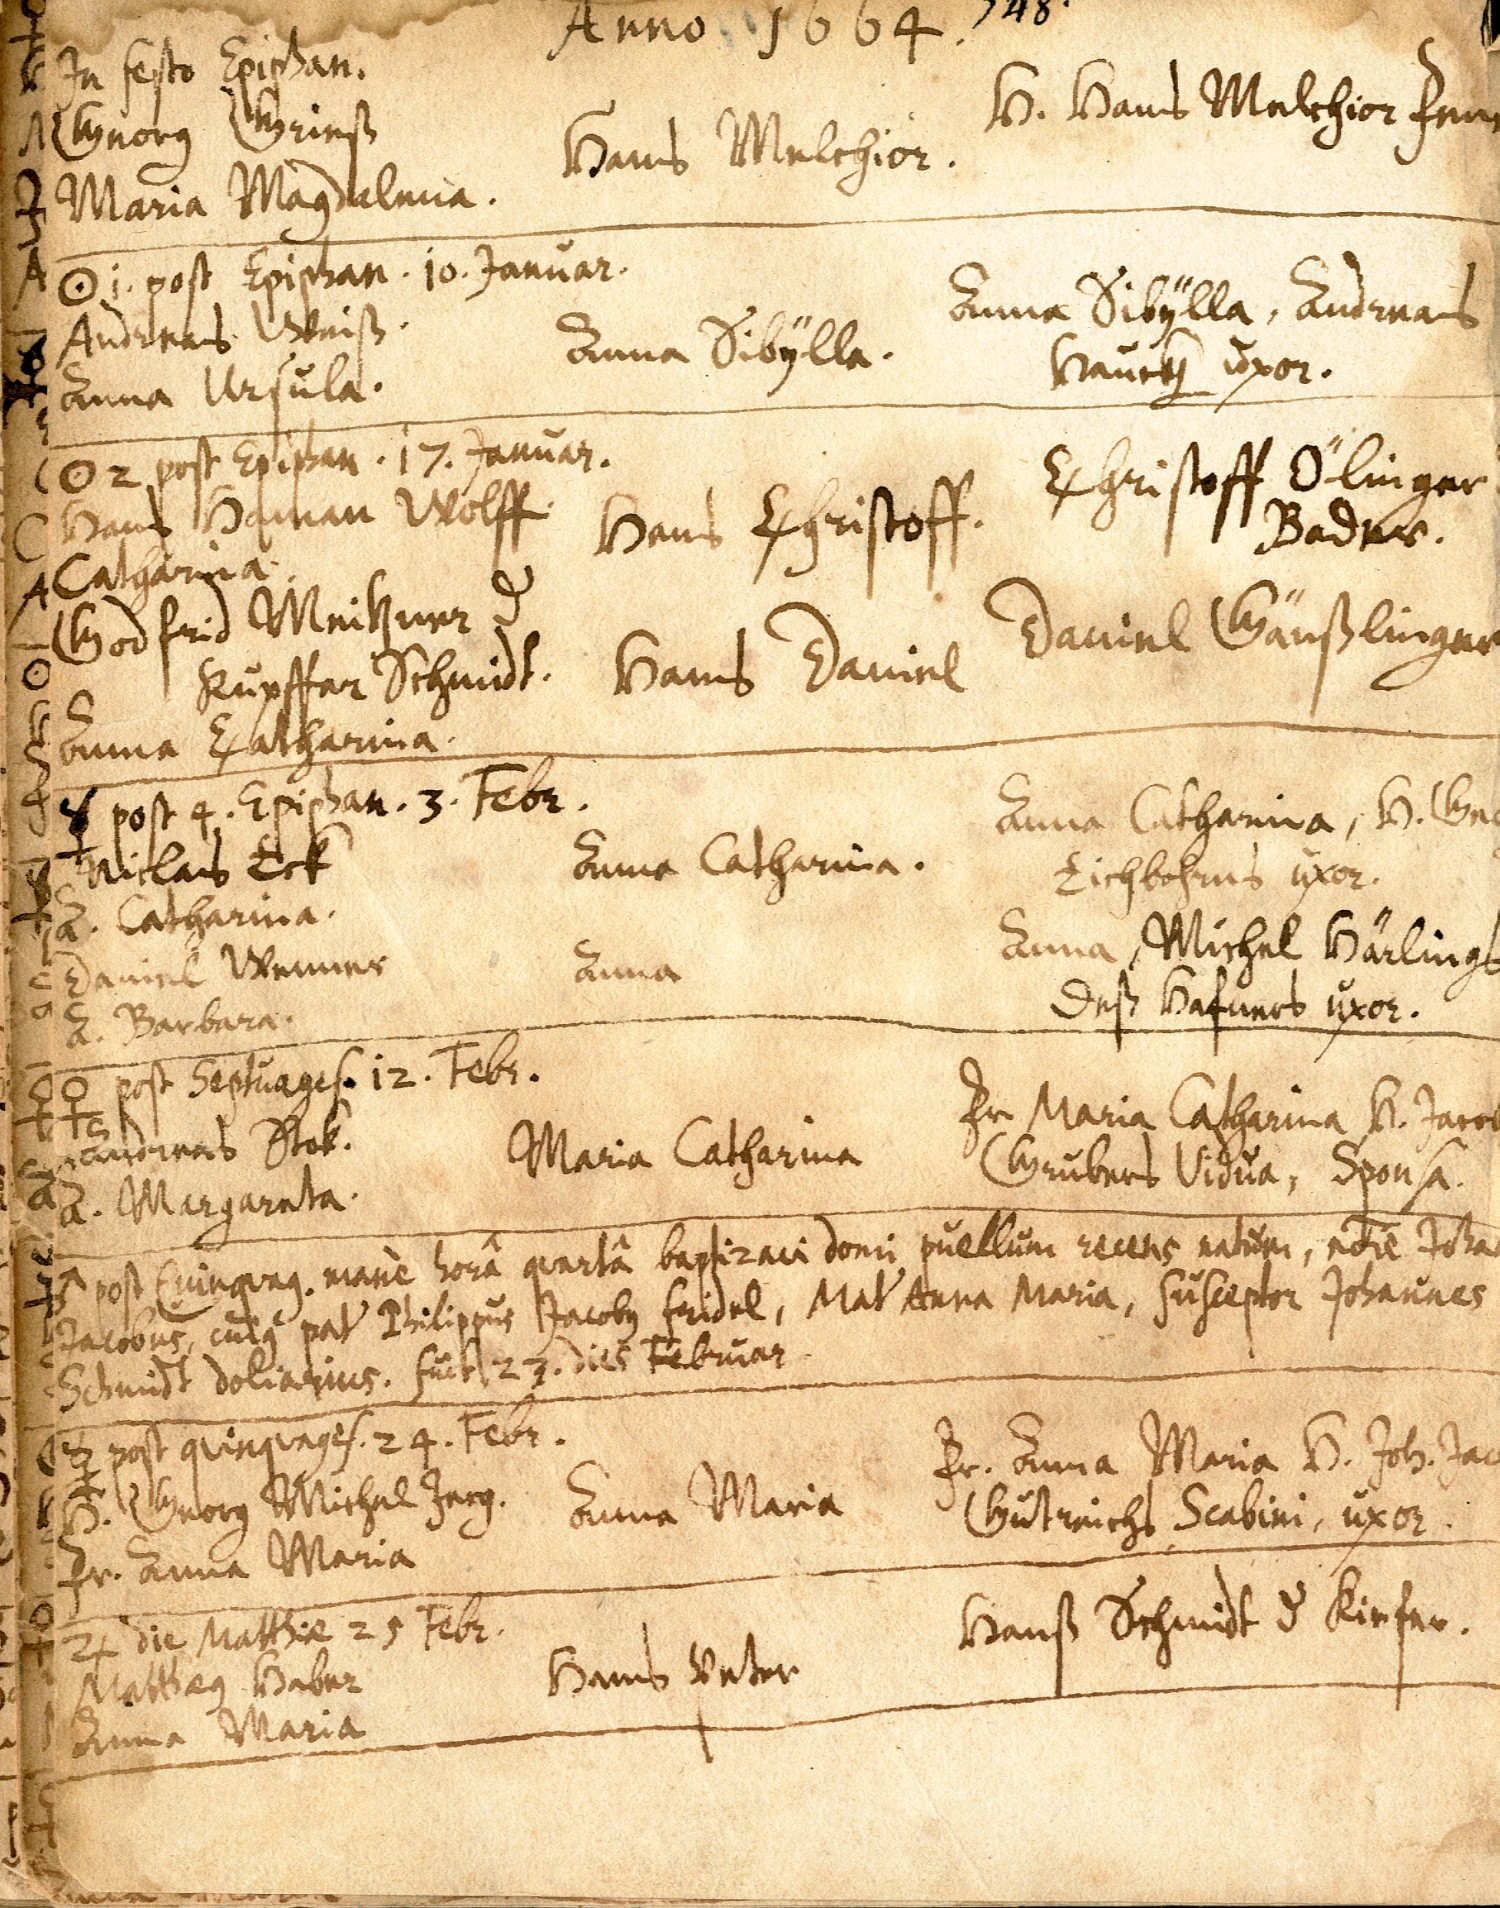 Anno 1664. 748.
In festo Epiphan.
Georg Grieß
Maria Magdalena.
Hans Melchior.
H. Hans Melchior
☉ 1. post Epiphan. 10. Januar.
Andreas Weiß.
Anna Ursula.
Anna Sibÿlla.
Anna Sibÿlla, Andreas
uxor.
☉ 2 post Epiphan. 17. Januar.
Hans Haman Wolff
Catharina.
Hans Christoff.
Christoff Ölinger
Bader.
Godfrid Meitzner d
Kupffer Schmidt.
Anna Catharina.
Hans Daniel
Daniel Gäußlinger
☿ post 4. Epiphan. 3. Febr.
Niclaus Eck
A. Catharina.
Anna Catharina.
Anna Catharina, H.
Eichbohrns uxor.
Daniel Wenner
A. Barbara.
Anna
Anna, Michel Härlings
deß Hafners uxor.
♀ post Septuages. 12. Febr.
Andreas Stok.
A. Margareta.
Maria Catharina
Fr Maria Catharina H. Jacob
Grubers Vidua, Sponsa.
post Quinquag. manè horâ quartâ baptizavi domi puellum recens natum, nōīe
Jacobus, pat Philippus Jacobus Fridel, Mat Anna Maria, susceptor Johannes
Schmidt doliarius. fuit 23. dies Februar
☿ post quinquages. 24. Febr.
H. Georg Michel Jerg.
Fr. Anna Maria
Anna Maria
Fr. Anna Maria H. Joh. Jac
Gutreichs Scabini, uxor.
♃ die Matthiæ 25 Febr.
Matthæus Haber
Anna Maria
Hans Peter
Hanß Schmidt d Kiefer.